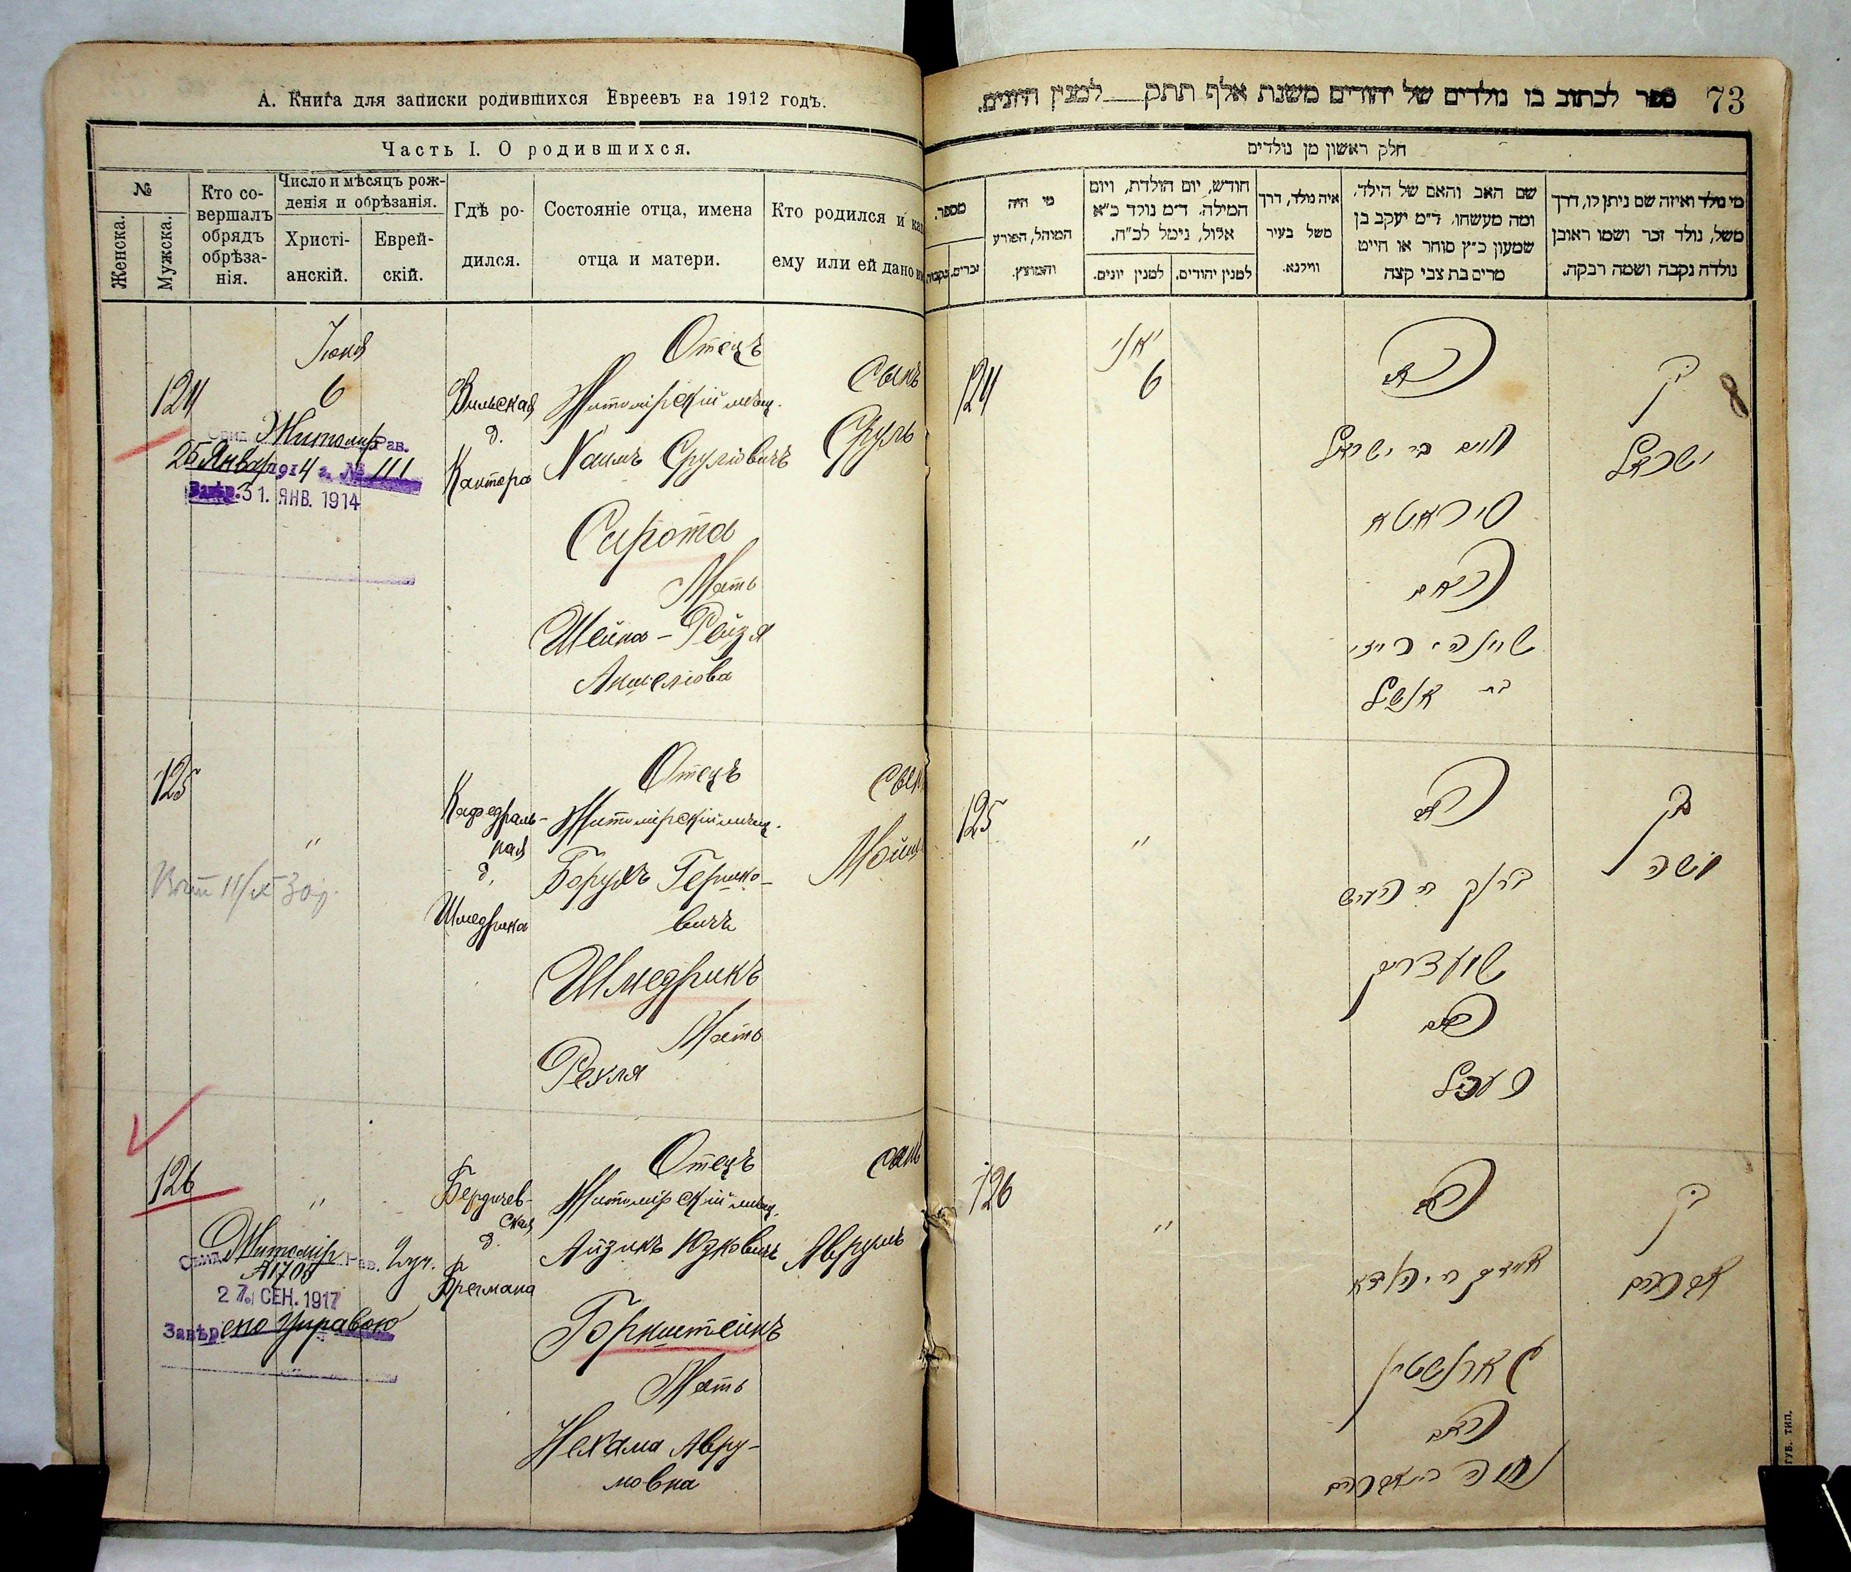 А. Книга для записки родившихся Евреевъ на 1912 годъ.
Часть I. О родившихся.
№
Женска.
Мужска.
Кто со-
вершалъ
обрядъ
обрѣза-
нія.
Число и мѣсяцъ рож-
денія и обрѣзанія.
Христі-
анскій.
Еврей-
скій.
Гдѣ ро-
дился.
Состояніе отца, имена
отца и матери.
Кто родился и как
ему или ей дано
124
Іюня
6
Вильская
д.
Кантора
Отецъ
Житомірскій мѣщ.
Хаимъ Срулiовичъ
Сирота
Мать
Шейна-Рейзя
Аншелiова
сынъ
Сруль
Житомир Рав.
25 Январ 1914 г. № 111
31. ЯНВ. 1914
125
"
Кафедраль-
ная
д.
Шмедрика
Отецъ
Житомірскій мѣщ.
Борухъ Гершко-
вичъ
Шмедрикъ
Мать
Рехля
сын
126
"
Бердичев-
ская
д.
Брегмана
Отецъ
Житомірскій мѣщ.
Айзикъ Юзковичъ
Горнштейнъ
Мать
Нехама Авру-
мовна
сынъ
Аврумъ
Житомір Рав.
27. СЕН. 1917
Завѣрено Управою
ספר לכתוב בו נולדים של יהודים משנת אלף תתק למנין היונים.
73
חלק ראשון מן נולדים
מספר.
זכרים.
נקבות
מי היה
המוהל, הפורע
והמוצץ.
חודש, יום הולדת, ויום
המילה. ד״מ נולד כ״א
אלול, נימל לכ״ח.
למנין יונים.
למנין יהודים.
איה נולד, דרך
משל בעיר
ווילנא.
שם האב והאם של הילד,
ומה מעשהו. ד״מ יעקב בן
שמעון כ״ץ סוחר או חייט
מרים בת צבי קצה
מי נולד ואיזה שם ניתן לו, דרך
משל, נולד זכר ושמו ראובן
נולדה נקבה ושמה רבקה.
124
יאני
6
האב
חיים בר ישראל
סיראטא
האם
שיינה רייזי
בת אנשיל
בן
ישראל
8
125
"
האב
האם
בן
משה
126
"
האב
גארנשטיין
האם
בן
אברהם
ГУБ. ТИП.